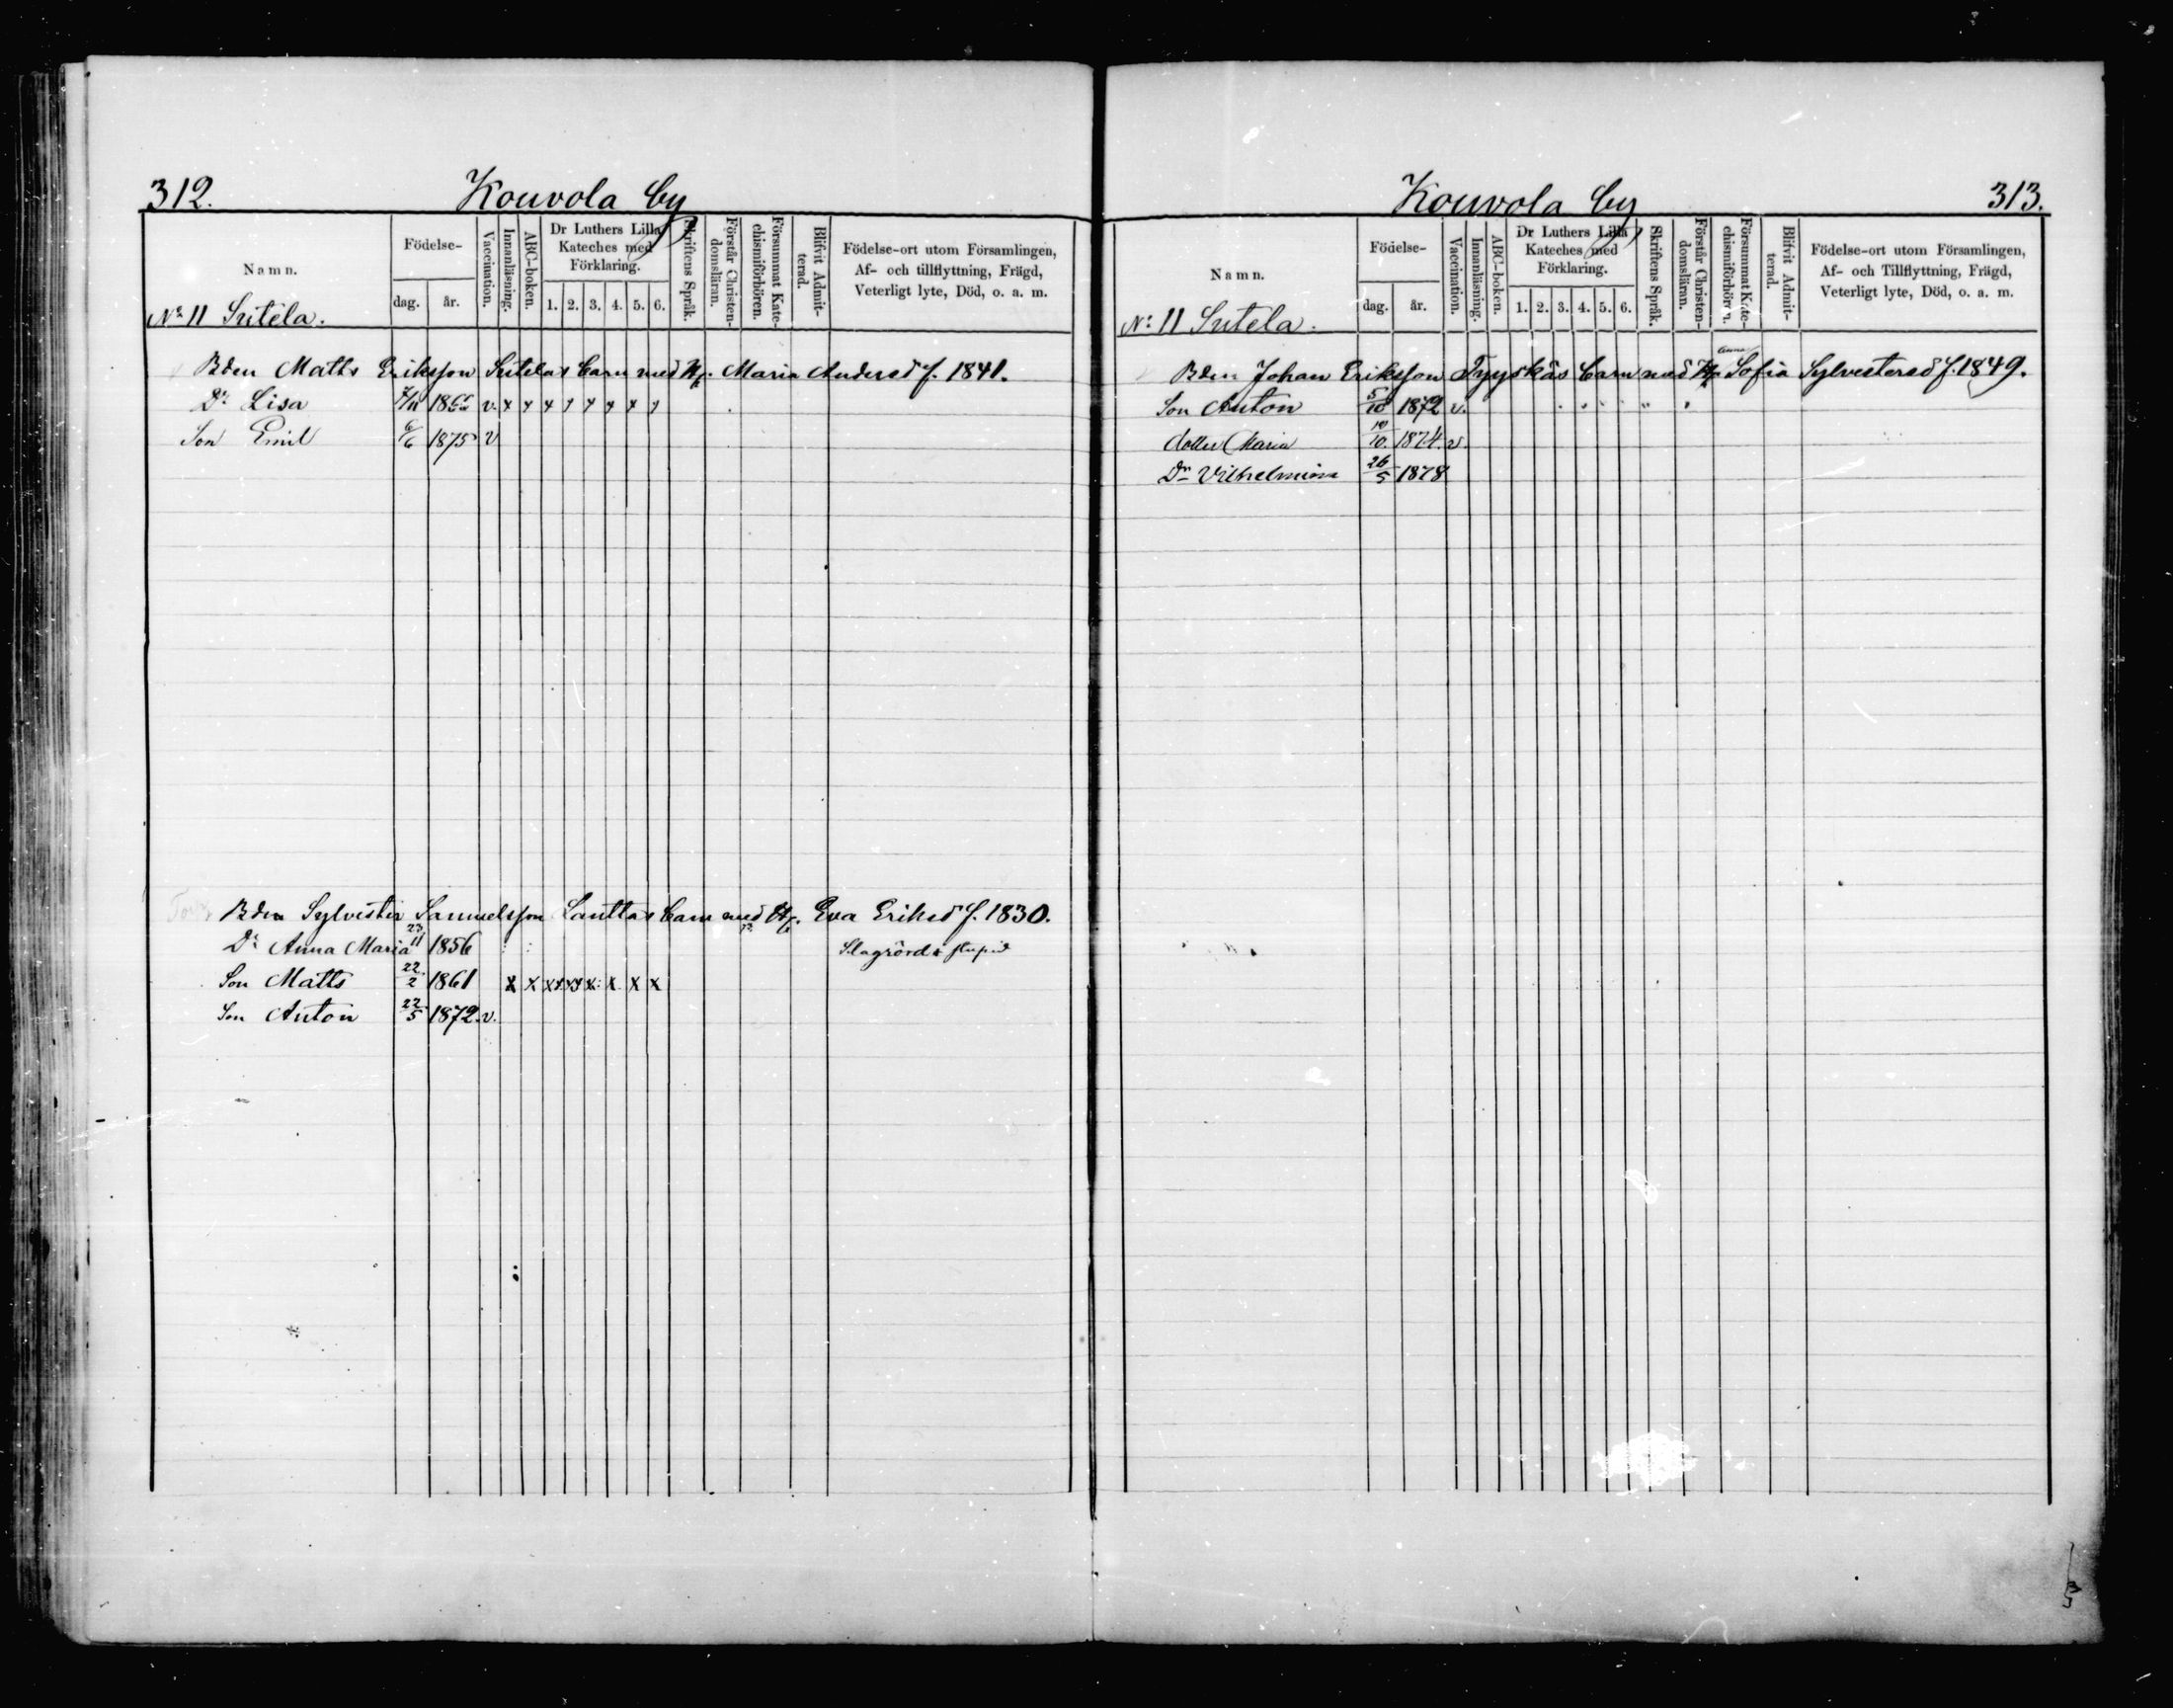 312. Kouvola by
Namn. Födelse- dag. år. Vaccination. Innanläsning. ABC-boken. Dr Luthers Lilla Kateches med Förklaring. 1. 2. 3. 4. 5. 6. Skriftens Språk. Förstår Christendomsläran. Försummat Katechismiförhören. Blifvit Admitterad. Födelse-ort utom Församlingen, Af- och tillflyttning, Frägd, Veterligt lyte, Död, o. a. m.
No 11 Sutela.
Bden Matts Eriksson Sutelas barn med H. Maria Andersd f. 1841.
Dr Lisa v. x x x x x x x x
Son Emil 6/6 1875 v
Bden Sylvester Samuelsson Lanttas barn med H. Eva Eriksd f. 1830.
Dr Anna Maria 23/11 1856 Slagrörd & stupid
Son Matts 22/2 1861 x x x x x x x x x x
Son Anton 22/5 1872. v.
Kouvola by 313.
Namn. Födelse- dag. år. Vaccination. Innanläsning. ABC-boken. Dr Luthers Lilla Kateches med Förklaring. 1. 2. 3. 4. 5. 6. Skriftens Språk. Förstår Christendomsläran. Försummat Katechismiförhören. Blifvit Admitterad. Födelse-ort utom Församlingen, Af- och Tillflyttning, Frägd, Veterligt lyte, Död, o. a. m.
No 11 Sutela.
Bden Johan Eriksson Tyyskäs barn med H Anna Sofia Sylvestersd f. 1849.
Son Anton 5/10 1872 v.
dotter Maria 10/10 1874. v.
Dr Vilhelmina 26/5 1878